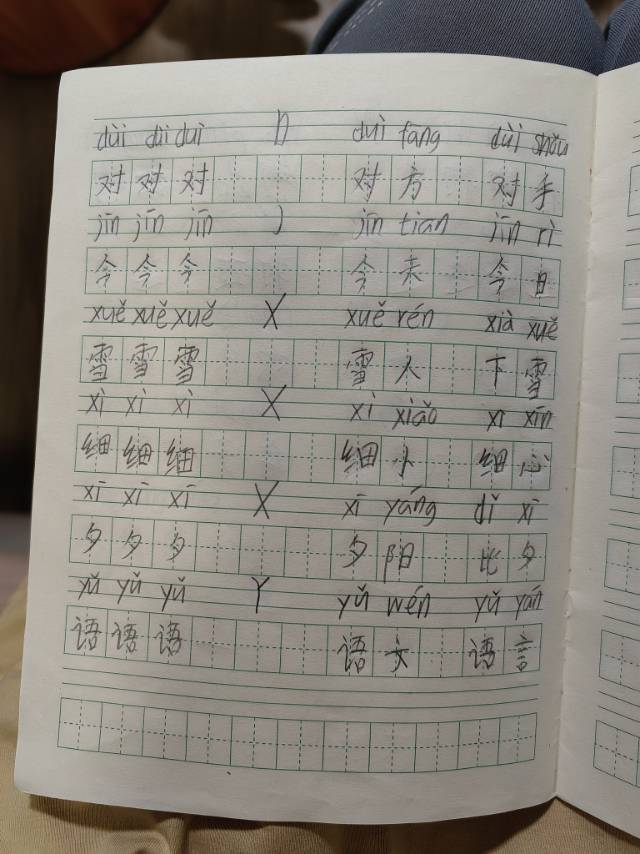 duì duì duì D duì fang duì shǒu
对 对 对 对 方 对 手
jīn jīn jīn J jīn tian jīn rì
今 今 今 今 天 今 日
xuě xuě xuě X xuě rén xià xuě
雪 雪 雪 雪 人 下 雪
xì xì xì X xì xiǎo xì xīn
细 细 细 细 小 细 心
xī xī xī X xī yáng dǐ xī
夕 夕 夕 夕 阳 比 夕
yǔ yǔ yǔ Y yǔ wén yǔ yán
语 语 语 语 文 语 言